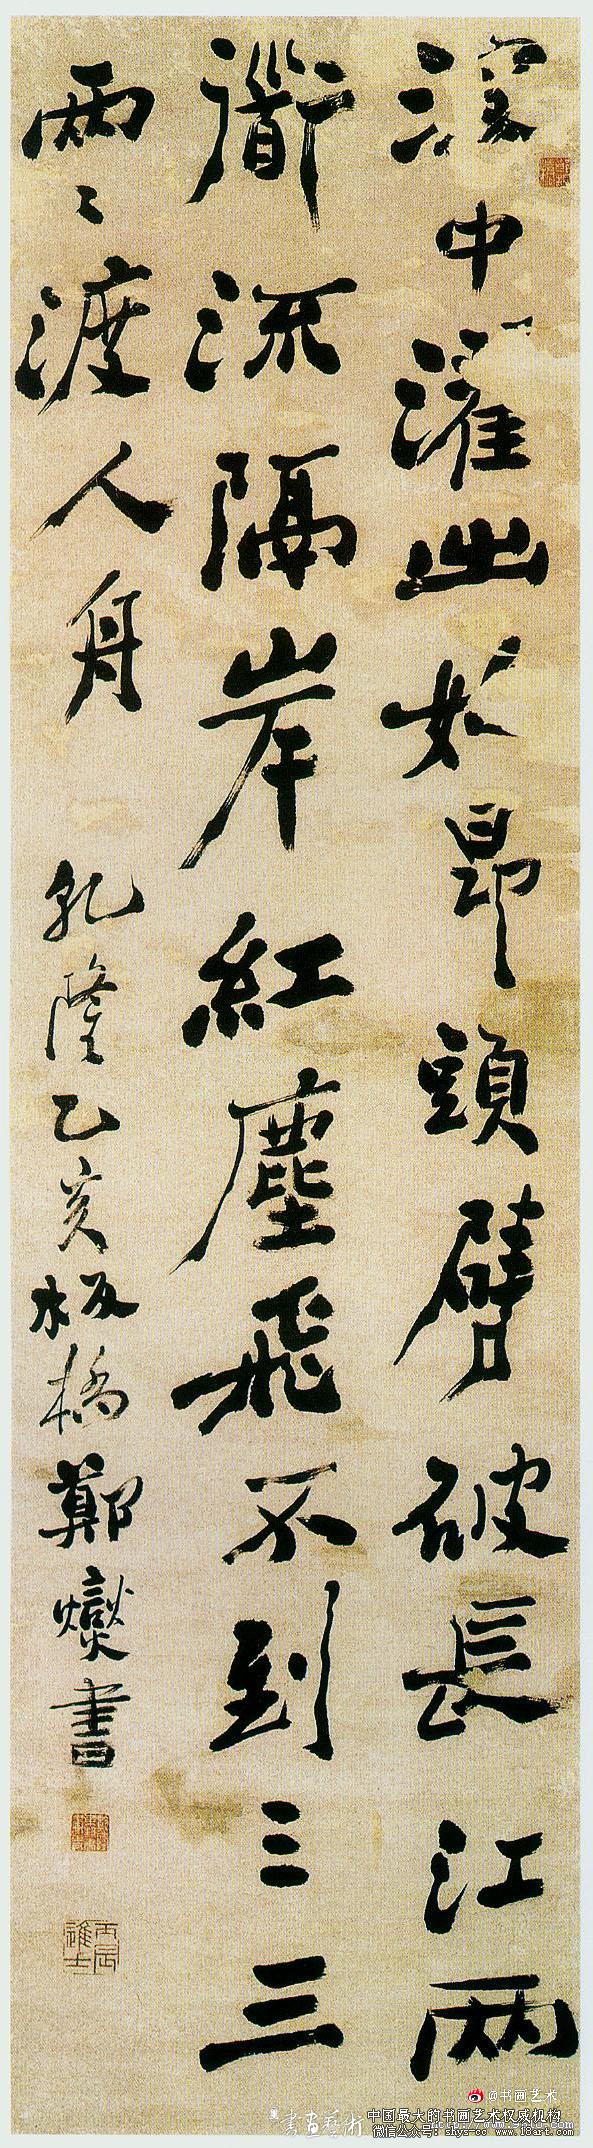 浪中濯出妙昂頭劈破長江兩
衜流隔岸紅塵飛不到三三
兩〻渡人舟
乾隆乙亥板橋鄭燮書
丙辰進士
@书画艺术
書畫藝術
中国最大的书画艺术权威机构
微信公众号：shys-cc www.18art.com